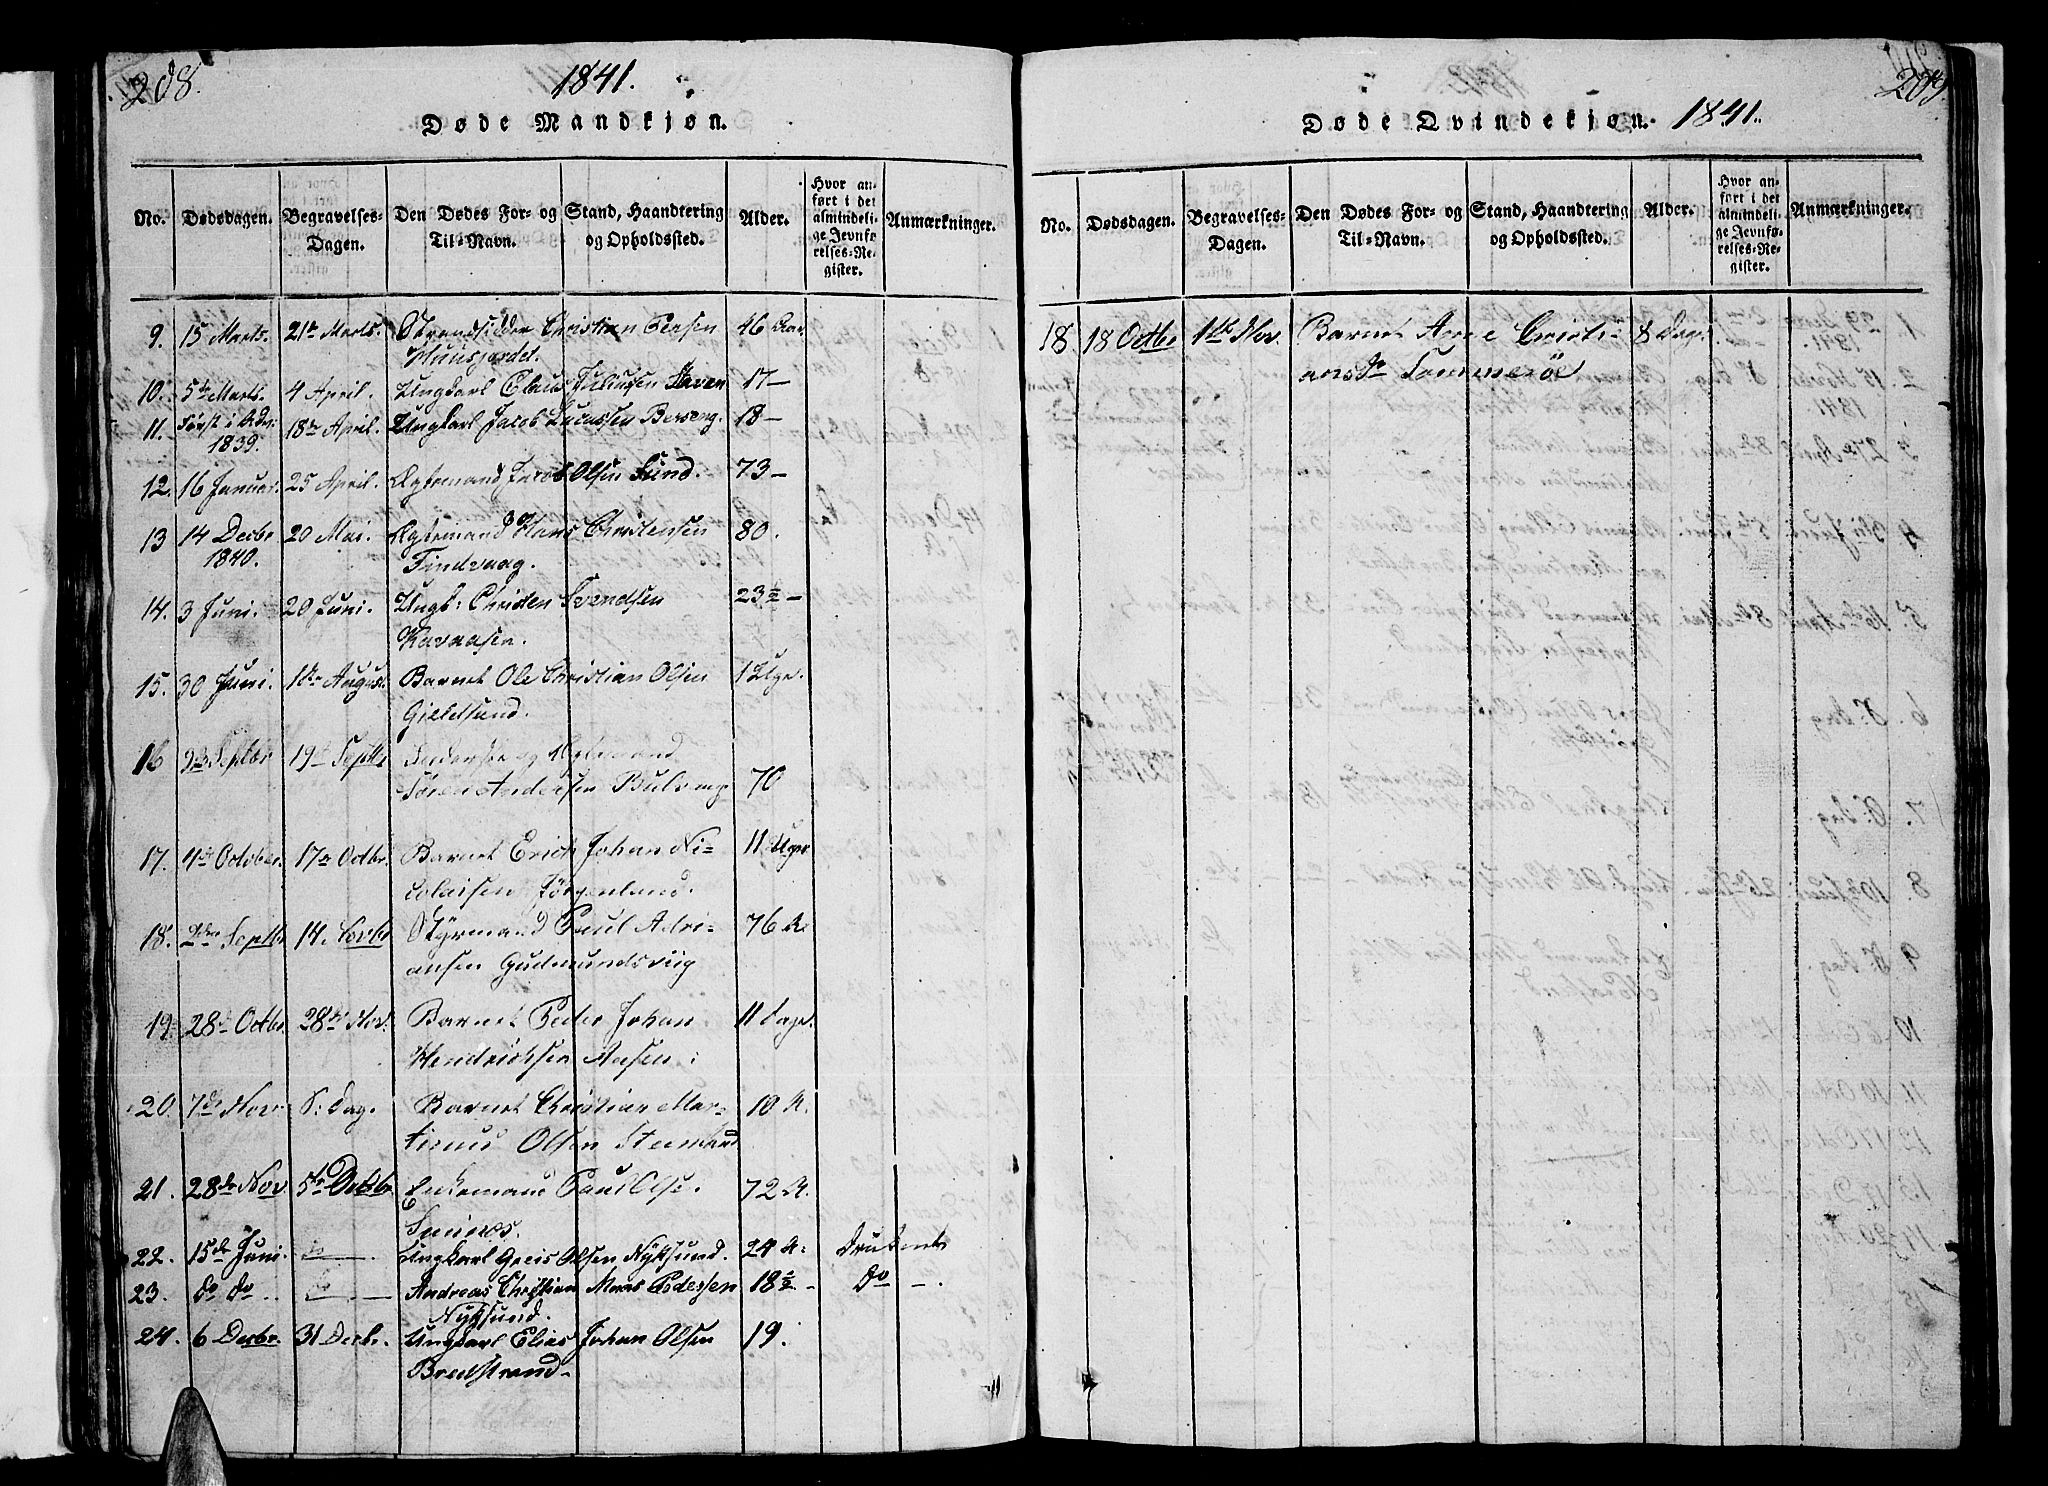 208.
1841.
Døde Mandkjøn.
No.
Dødsdagen.
Begravelses-
Dagen.
Den Dødes For- og
Til-Navn.
Stand, Haandtering
og Opholdssted.
Alder.
Hvor an-
ført i det
almindeli-
ge Jevnfø-
relses-Re-
gister.
Anmærkninger.
9. 15 Marts. 21de Marts. Strandsidder Christian Pensen 46 Aar
10. 5te Marts. 4 April. Ungkarl Claus Juliussen Staven 17 —
11. Først i 1839. 18de April. Ungkarl Jacob Lucassen Berseng. 18 —
12. 16 Januar. 25 April. Lægtemand Jacob Olsen Sund. 73 —
13 14 Decbr 20 Mai. Hans Christensen 80.
1840. Findvaag.
14. 3 Juni. 20 Juni. Ungk: Christen Svendsen 23½ —
Kavaasen.
15. 30 Juni. 1ste August. Barnet Ole Christian Olsen 1 Uge.
Gieldsund.
16 23 Septbr 19de Septbr
Søren Andersen Bulvng 70
17. 4de October. 17de Octbr. Barnet Erich Johan Ni- 11 Uger
colaisen Jørgenland.
18. 2den Septbr 14. Novbr Styrmand Paul Adri- 76 A.
ansen Gudmundsviig
19. 28de Octbr. 28de Nov. Barnet Peder Johan 11 Dage.
Hendrichsen Aasen.
20. 7de Novr S: Dag. Barnet Christian Mar- 10 A.
tinus Olsen Steinland
21. 28de Nov 5te Decbr Enkemand Paul Olsen. 72 A.
Smines.
22. 15de Juni. Do — Ungkarl Greis Olsen Nyksund. 24 A. Druknet
23. do do Do — Andreas Christian Maas Pedersen 18½ - Do —.
Nyksund.
24. 6 Decbr. 31 Decbr. Ungkarl Elias Johan Olsen 19.
Bredstrand.
209.
Døde Qvindekjøn. 1841.
No.
Dødsdagen.
Begravelses-
Dagen.
Den Dødes For- og
Til-Navn.
Stand, Haandtering
og Opholdssted.
Alder.
Hvor an-
ført i det
almindeli-
ge Jevnfø-
relses-Re-
gister.
Anmærkninger.
18. 18 Octbr 1ste Nov. Barnet Anne Christi- 8 Dage
ansdr Tommerøe